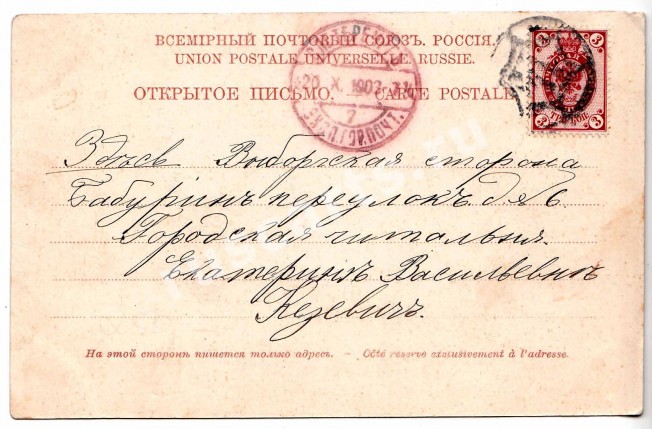 ВСЕМІРНЫЙ ПОЧТОВЫЙ СОЮЗЪ. РОССІЯ.
UNION POSTALE UNIVERSELLE. RUSSIE.
ОТКРЫТОЕ ПИСЬМО. — CARTE POSTALE
20 X 1902
7
3 3
3 3
Здѣсь Выборгская сторона
Бабуринъ переулокъ д № 6.
Городская читальня.
Екатеринѣ Васильевнѣ
Кезевичъ.
На этой сторонѣ пишется только адресъ. — Côté réservé exclusivement à l'adresse.